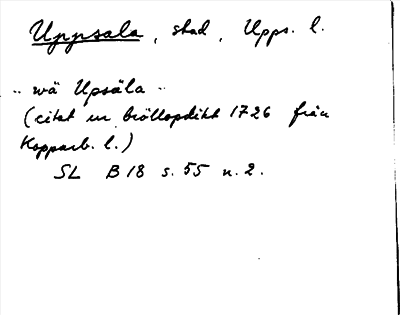 Uppsala, stad, Upps. l.
.. wä Upsäla ..
(citat ur bröllopsdikt 1726 från
Kopparb. l.)
SL B 18 s. 55 n. 2.